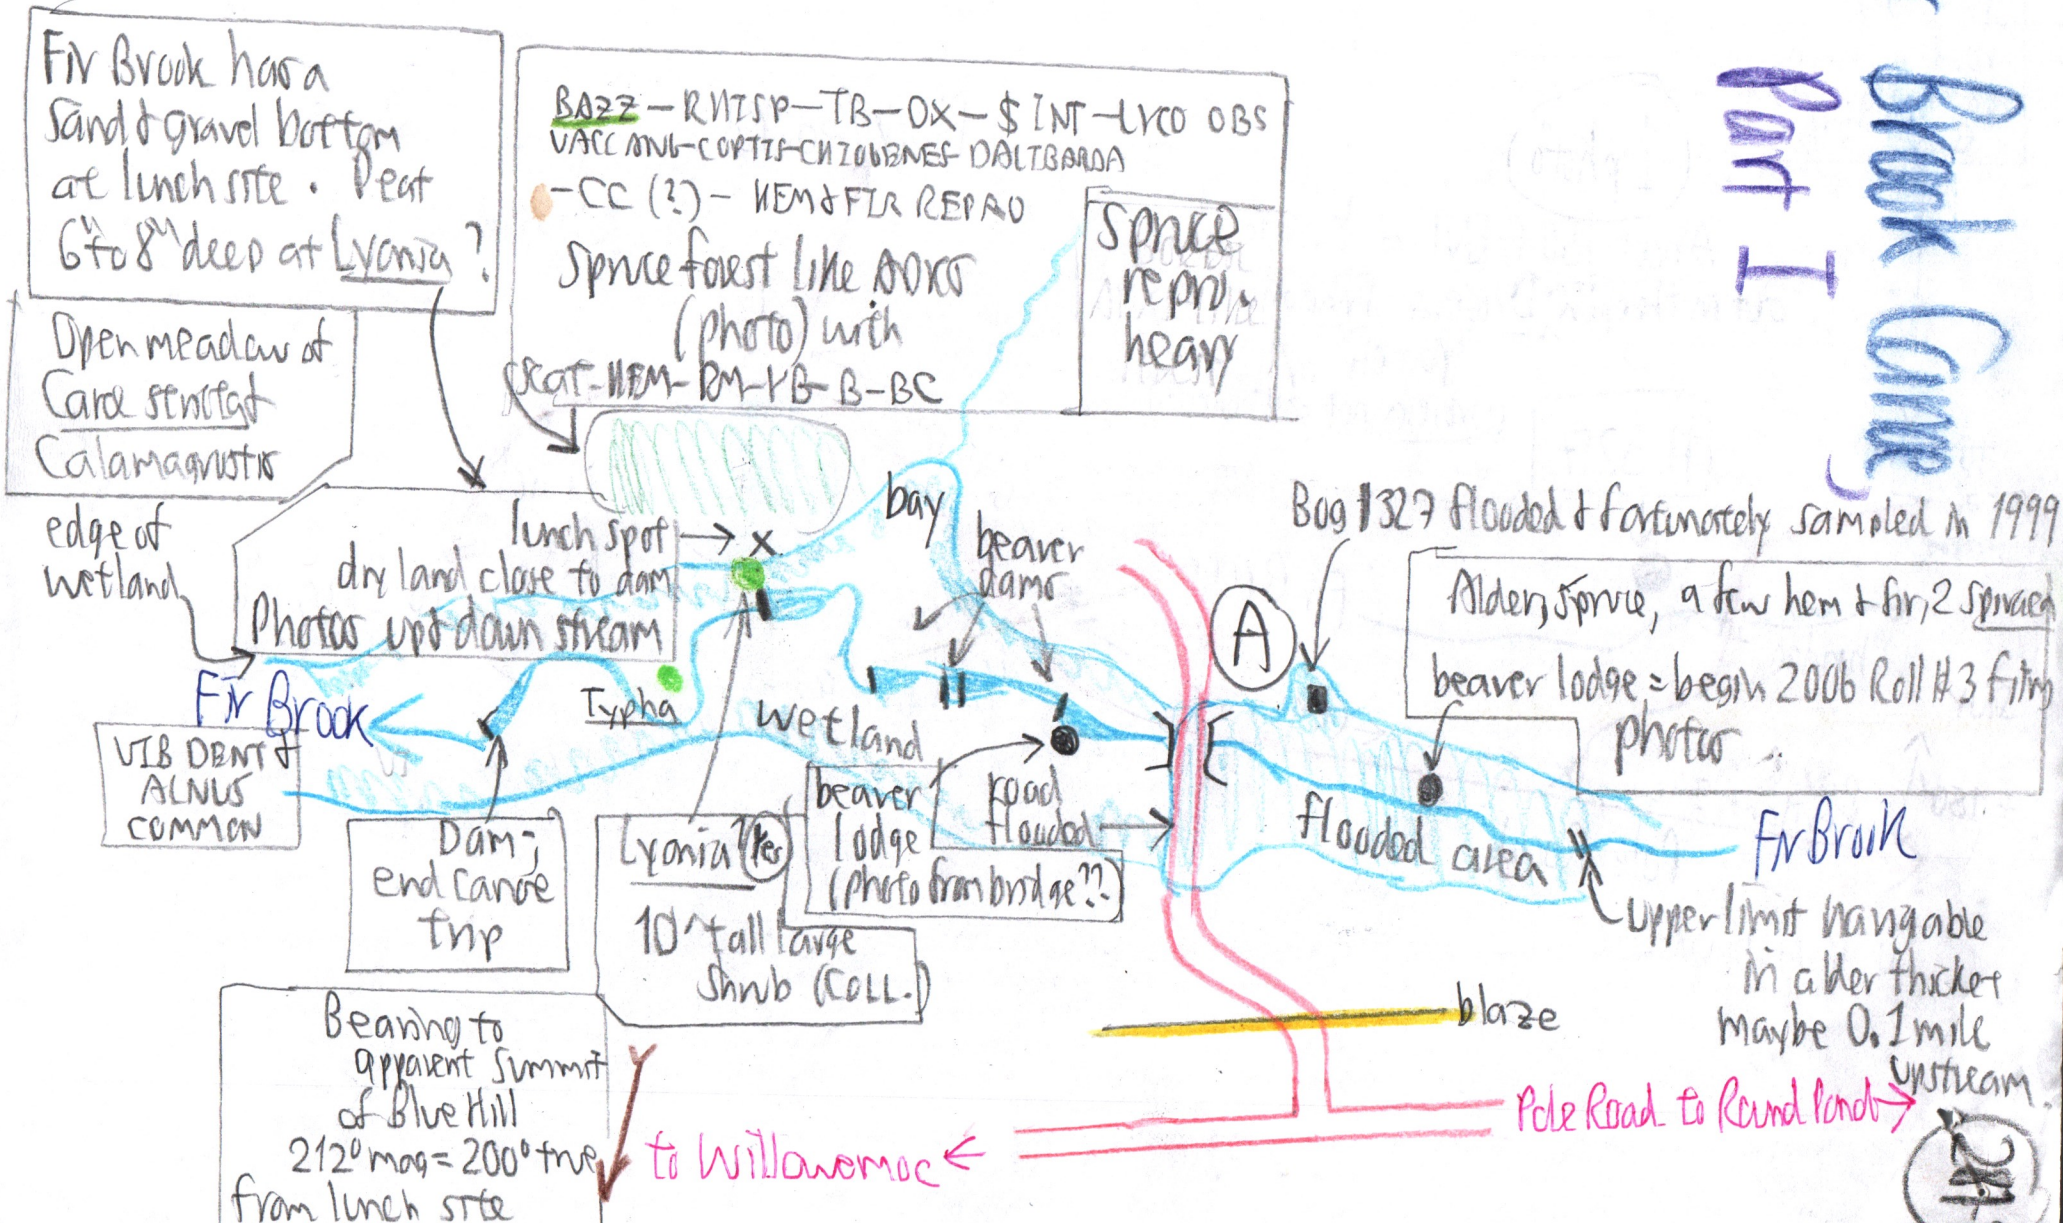 Brook Canoe,
Part I
Fir Brook has a
Sand & gravel bottom
at lunch site. Peat
6" to 8" deep at Lyonia?
BAZZ-RHISP-TB-OX-$ INT-LYCO OBS
VACC ANG-COPTIS-CHIOGENES DALIBARDA
-CC (?)- HEM & FIR REPRO
Spruce forest like ADKS
(photo) with
-HEM-RM-YB-B-BC
Spruce
repro.
heavy
Open meadow of
Carex stricta &
Calamagrostis
edge of
wetland
lunch spot → x
dry land close to dam
Photos up & down stream
bay
beaver
dams
Bog 1327 flooded & fortunately sampled in 1999
A
Alder, spruce, a few hem & fir, 2 Spiraea
beaver lodge = begin 2006 Roll #3
photos
Fir Brook
Typha
wetland
VIB DENT &
ALNUS
COMMON
Dam;
end canoe
trip
Lyonia? Yes
10' tall large
Shrub (COLL.)
beaver
lodge
(photo from bridge??)
road
flooded
flooded area
Fir Brook
upper limit
in alder thicket
maybe 0.1 mile
upstream.
blaze
Bearing to
apparent summit
of Blue Hill
212° mag = 200° true
from lunch site
to Willowemoc ←
Pole Road to Round Pond →